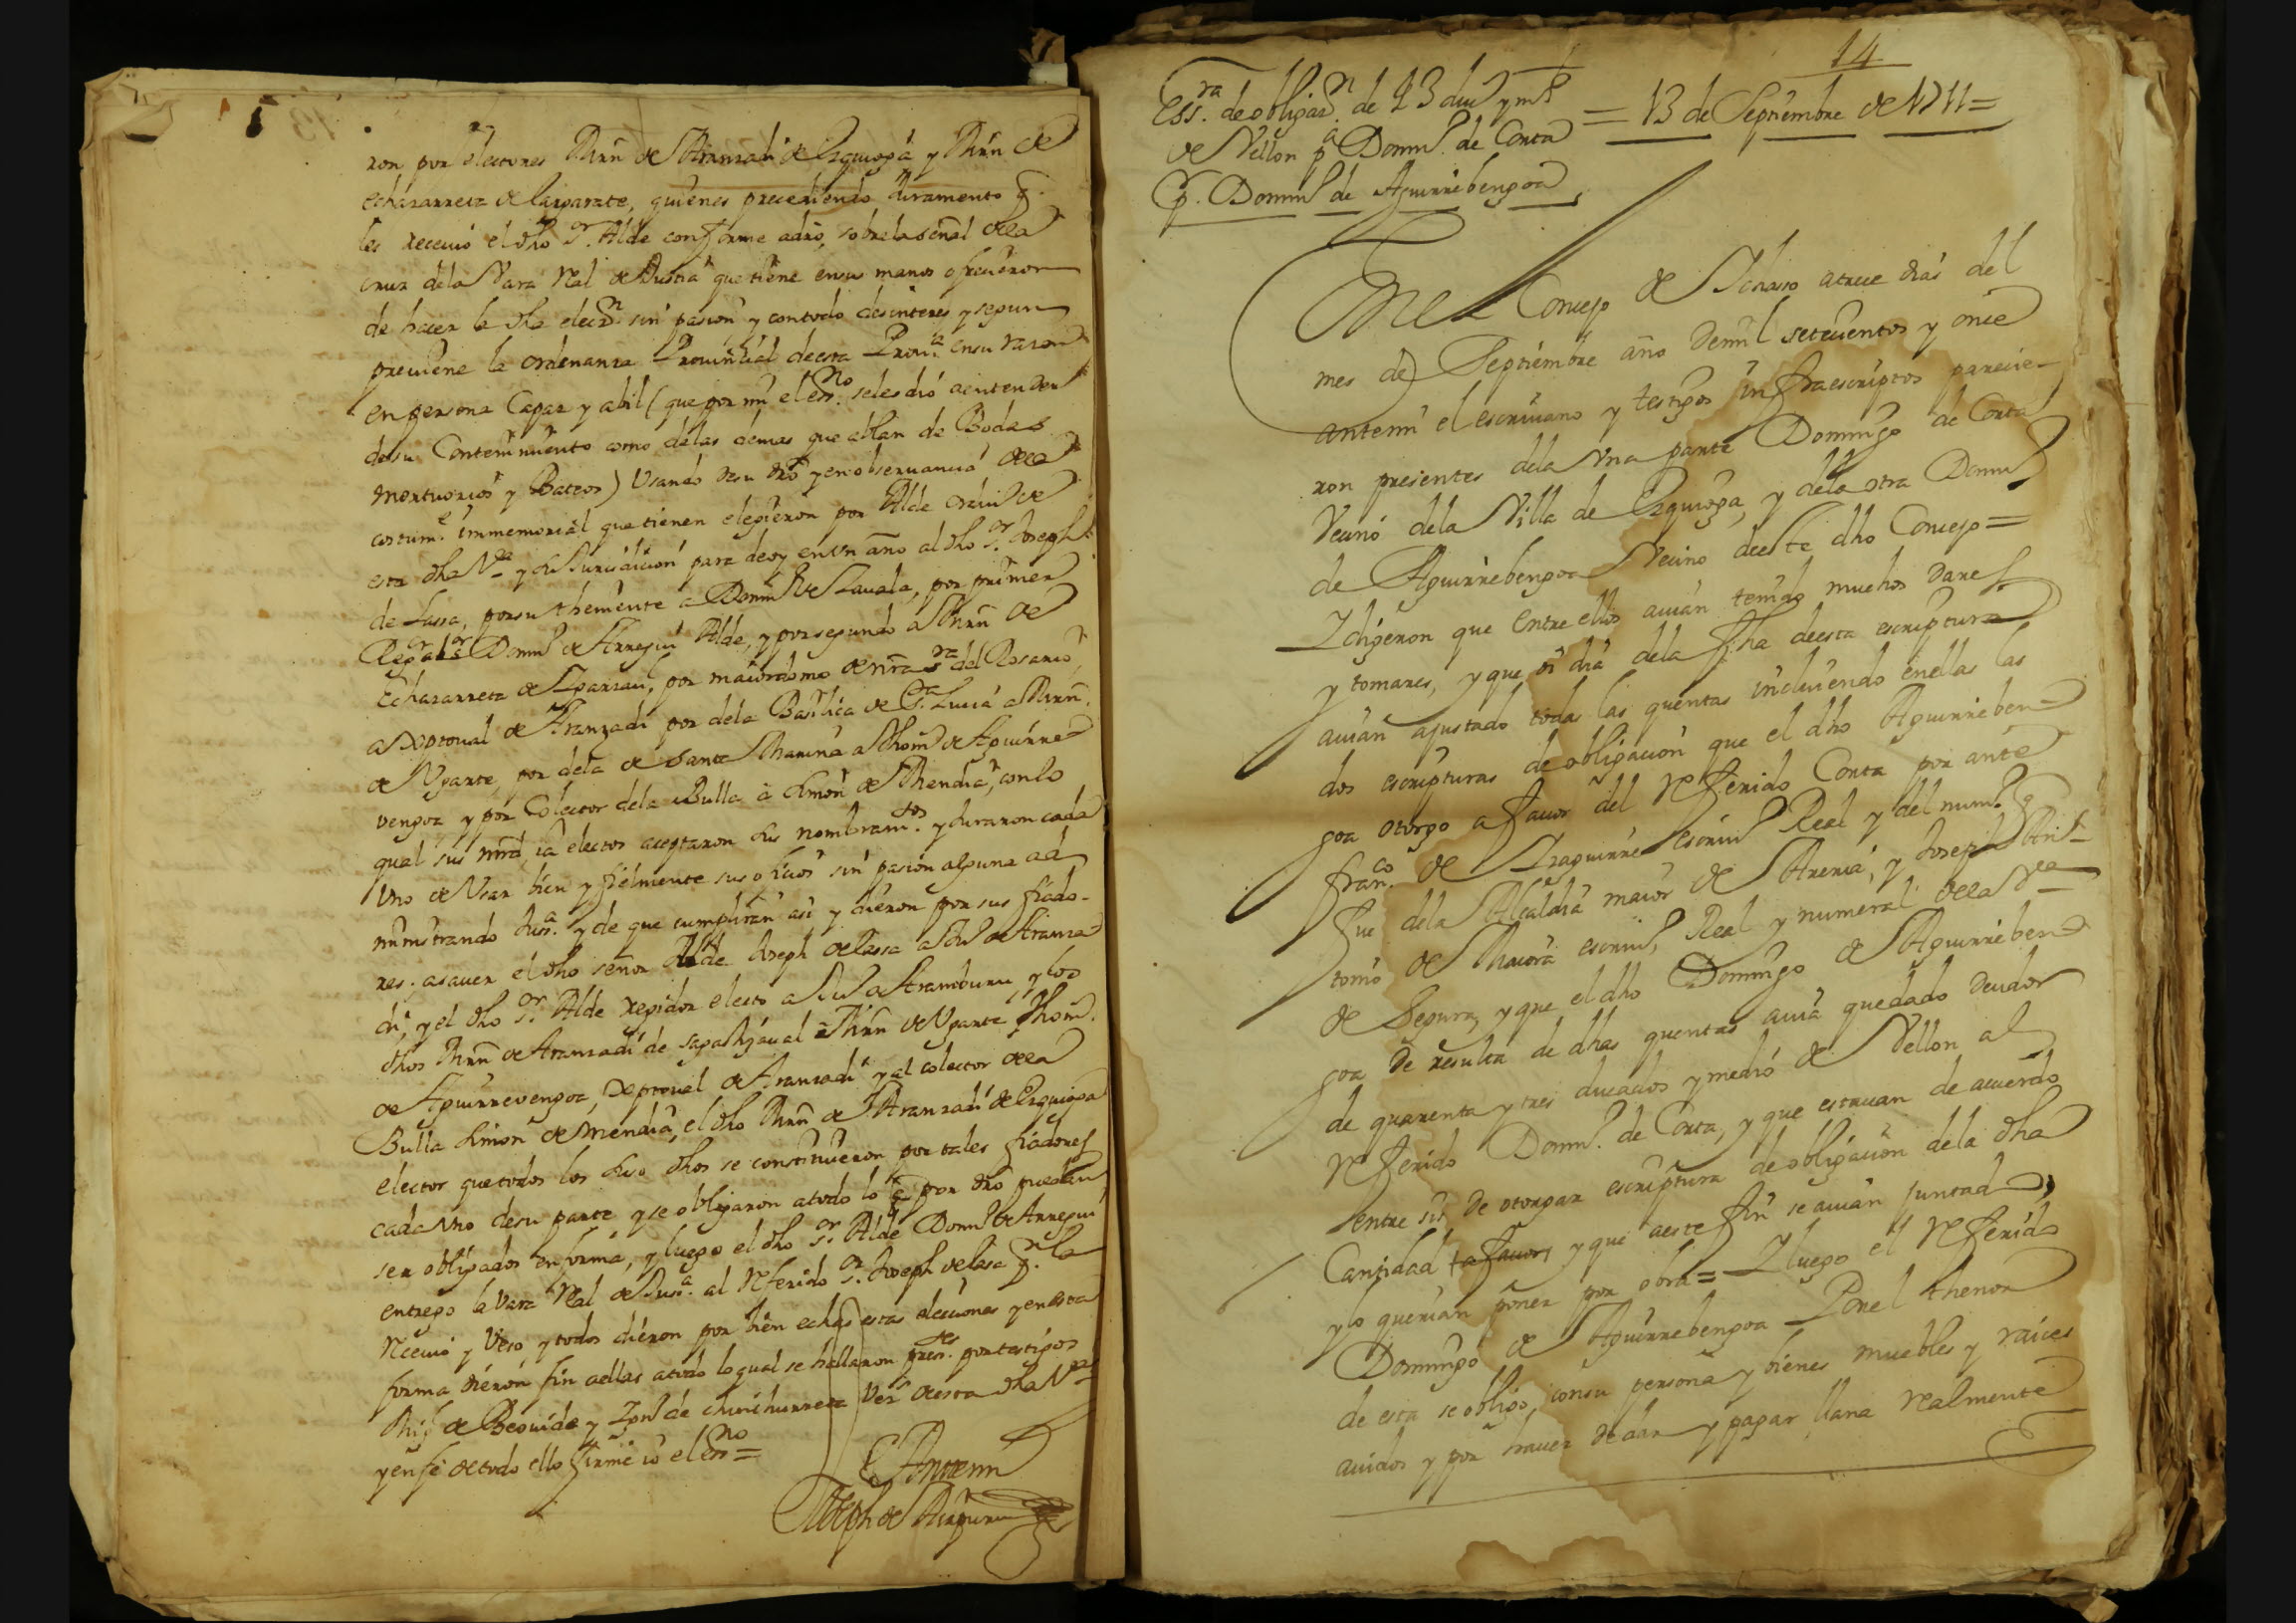 ron por electores Mrn de Aranzadi de Ezquioga y Mrn de
echazarreta de Çarparate, quienes precediendo Juramento q.
les recevio el dho Sr. Alde conforme adro, sobre la señal dela
cruz dela Vara Real de Justia que tiene ensus manos ofrecieron
de hacer la dha elecon. sin pasion y contodo desinteres y segun
previene la ordenanza Provincial deesta Prova. ensu razon
en persona Capaz y abil (que por mi el essno. seles dio aentender
desu Contenimiento como delas demas que ablan de Bodas
mortuorios y Bateos) Usando desu dro y en observancia dela
costume. immemorial que tienen eligieron por Alde ordino de
esta dha Va. y su Jurisdicion para deoy en Un año al dho Sr. Joseph
de Lassa, por su theniente a Domo de Zavala, por primer
Regor al Sor Domo de Arregui Alde, y por segundo a Mrn de
Echazarreta de Yparrau, por maiordomo de nra Sra del Rosario,
a Xptoual de Aranzadi por dela Basilica de Sta. Lucia a Mrn.
de Ugarte, por dela de Santa Marina a Thoms de Aguirre
vengoa y por Colector dela Bulla a Simon de Mendia, conlo
qual sus mrds ia electos aceptaron sus nombramtos. y Juraron cada
Uno de Usar bien y fielmente sus oficios sin pasion alguna ad
ministrando Jusa. y de que cumpliran asi y dieron por sus fiado-
res. asaver el dho señor Alde Joseph de Lassa a Ju de Aranza
di, y el dho Sr. Alde regidor electo a Ju de Aramburu y los
dhos Mrn de Aranzadi de sagastizaual a Mrn de Ugarte Thoms.
de Aguirrevengoa, Xptoual de Aranzadi y al colector dela
Bulla Simon de Mendia, el dho Mrn de Aranzadi de Ezquioga
elector que todos los suso dhos se constituieron por tales fiadores
cada Uno desu parte y se obligaron atodo lo q por dro puedan
ser obligados en forma, y luego el dho Sr. Alde Domo de Arregui
entrego la vara Real de Jusa. al referido Sr. Joseph de Lasa qn. la
recevio y Veso y todos dieron por bien echas estas elecciones y en esta
forma dieron fin aellas atodo lo qual se hallaron prestes. por testigos
Migl de Beguide y Ygno de chinchurreta Veos deesta dha Va
y en fe detodo ello firme io el essno =
Antemi
Joseph de Aizpuru
14
Essra. de obligaon. de 43 dus y mo
de Vellon pa Domo. de Corta
Cp. Domo de Aguirrebengoa
= 13 de Septiembre de 1711 =
En el Concejo de Ichaso atrece dias del
mes de Septiembre año demil setecientos y once
antemi el escrivano y testigos infraescriptos parecie-
ron presentes dela Una parte Domingo de Corta
Vecino dela Villa de Ezquioga, y dela otra Domo
de Aguirrebengoa Vecino deeste dho Concejo =
Y digeron que entre ellos avian tenido muchos dares
y tomares, y que oi dia dela fha deesta escriptura
avian ajustado todas las quentas incluiendo enellas las
dos escripturas de obligacion que el dho Aguirreben
goa otorgo a favor del referido Corta por ante
Franco. de Yraguirre escrivo Real y del numo. q
fue dela Alcaldia maior de Areria, y Joseph Ant-
tonio de Maiora escrivo, Real y numeral dela Va
de Segura, y que el dho Domingo de Aguirreben
goa De resulta de dhas quentas avia quedado deudor
de quarenta y tres ducados y medio de Vellon al
referido Domo. de Corta, y que estavan de acuerdo
entre si De otorgar escriptura de obligacion dela dha
Cantidad a favor, y que aeste fin se avian juntado,
y lo querian poner por obra = Y luego el referido
Domingo de Aguirrebengoa Porel thenor
de esta se obligo, consu persona y bienes muebles y raices
avidos y por haver de dar y pagar llana realmente